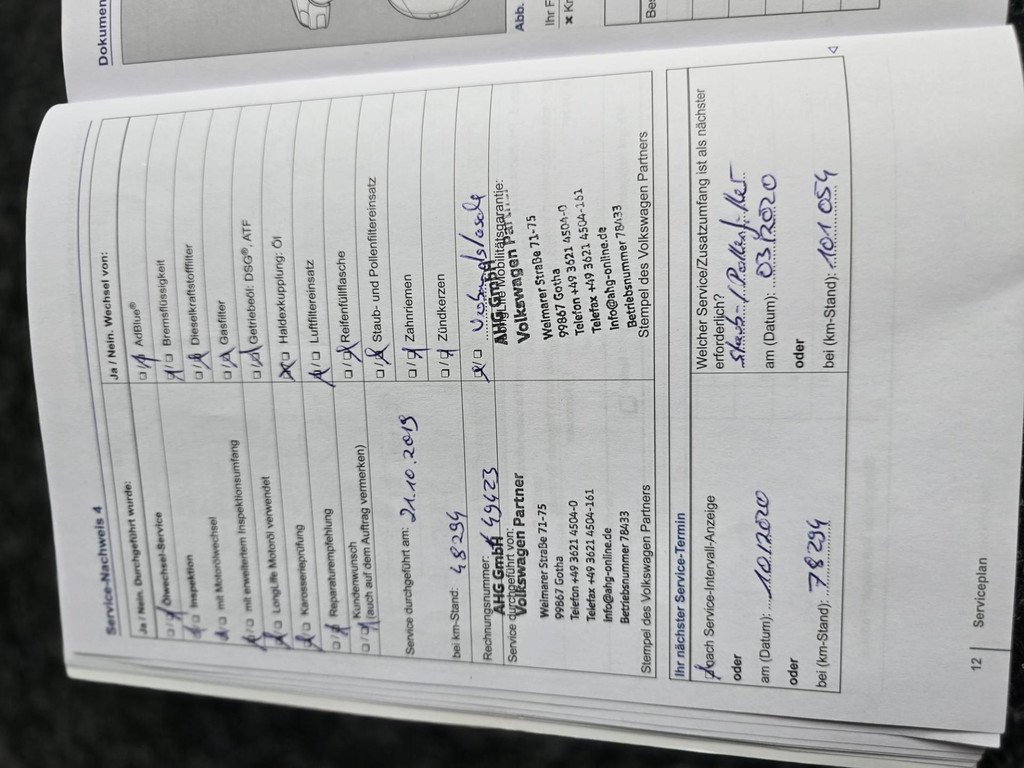 Dokumen
Abb.
Ihr F
Kr
Bes
Service-Nachweis 4
Ja / Nein. Durchgeführt wurde:
Ölwechsel-Service
Inspektion
mit Motorölwechsel
mit erweitertem Inspektionsumfang
LongLife Motoröl verwendet
Karosserieprüfung
Reparaturempfehlung
Kundenwunsch
(auch auf dem Auftrag vermerken)
Service durchgeführt am: 21.10.2019
bei km-Stand: 48294
Rechnungsnummer: 49423
Service durchgeführt von:
AHG GmbH
Volkswagen Partner
Weimarer Straße 71-75
99867 Gotha
Telefon +49 3621 4504-0
Telefax +49 3621 4504-161
Info@ahg-online.de
Betriebsnummer 78433
Stempel des Volkswagen Partners
Ja / Nein. Wechsel von:
AdBlue®
Bremsflüssigkeit
Dieselkraftstofffilter
Gasfilter
Getriebeöl: DSG®, ATF
Haldexkupplung: Öl
Luftfiltereinsatz
Reifenfüllflasche
Staub- und Pollenfiltereinsatz
Zahnriemen
Zündkerzen
Mobilitätsgarantie:
AHG GmbH
Volkswagen Partner
Weimarer Straße 71-75
99867 Gotha
Telefon +49 3621 4504-0
Telefax +49 3621 4504-161
Info@ahg-online.de
Betriebsnummer 78433
Stempel des Volkswagen Partners
Ihr nächster Service-Termin
nach Service-Intervall-Anzeige
oder
am (Datum): 10.12020
oder
bei (km-Stand): 78294
Welcher Service/Zusatzumfang ist als nächster
erforderlich?
Staub-/Pollenfilter
am (Datum): 03.12020
oder
bei (km-Stand): 101.054
12
Serviceplan